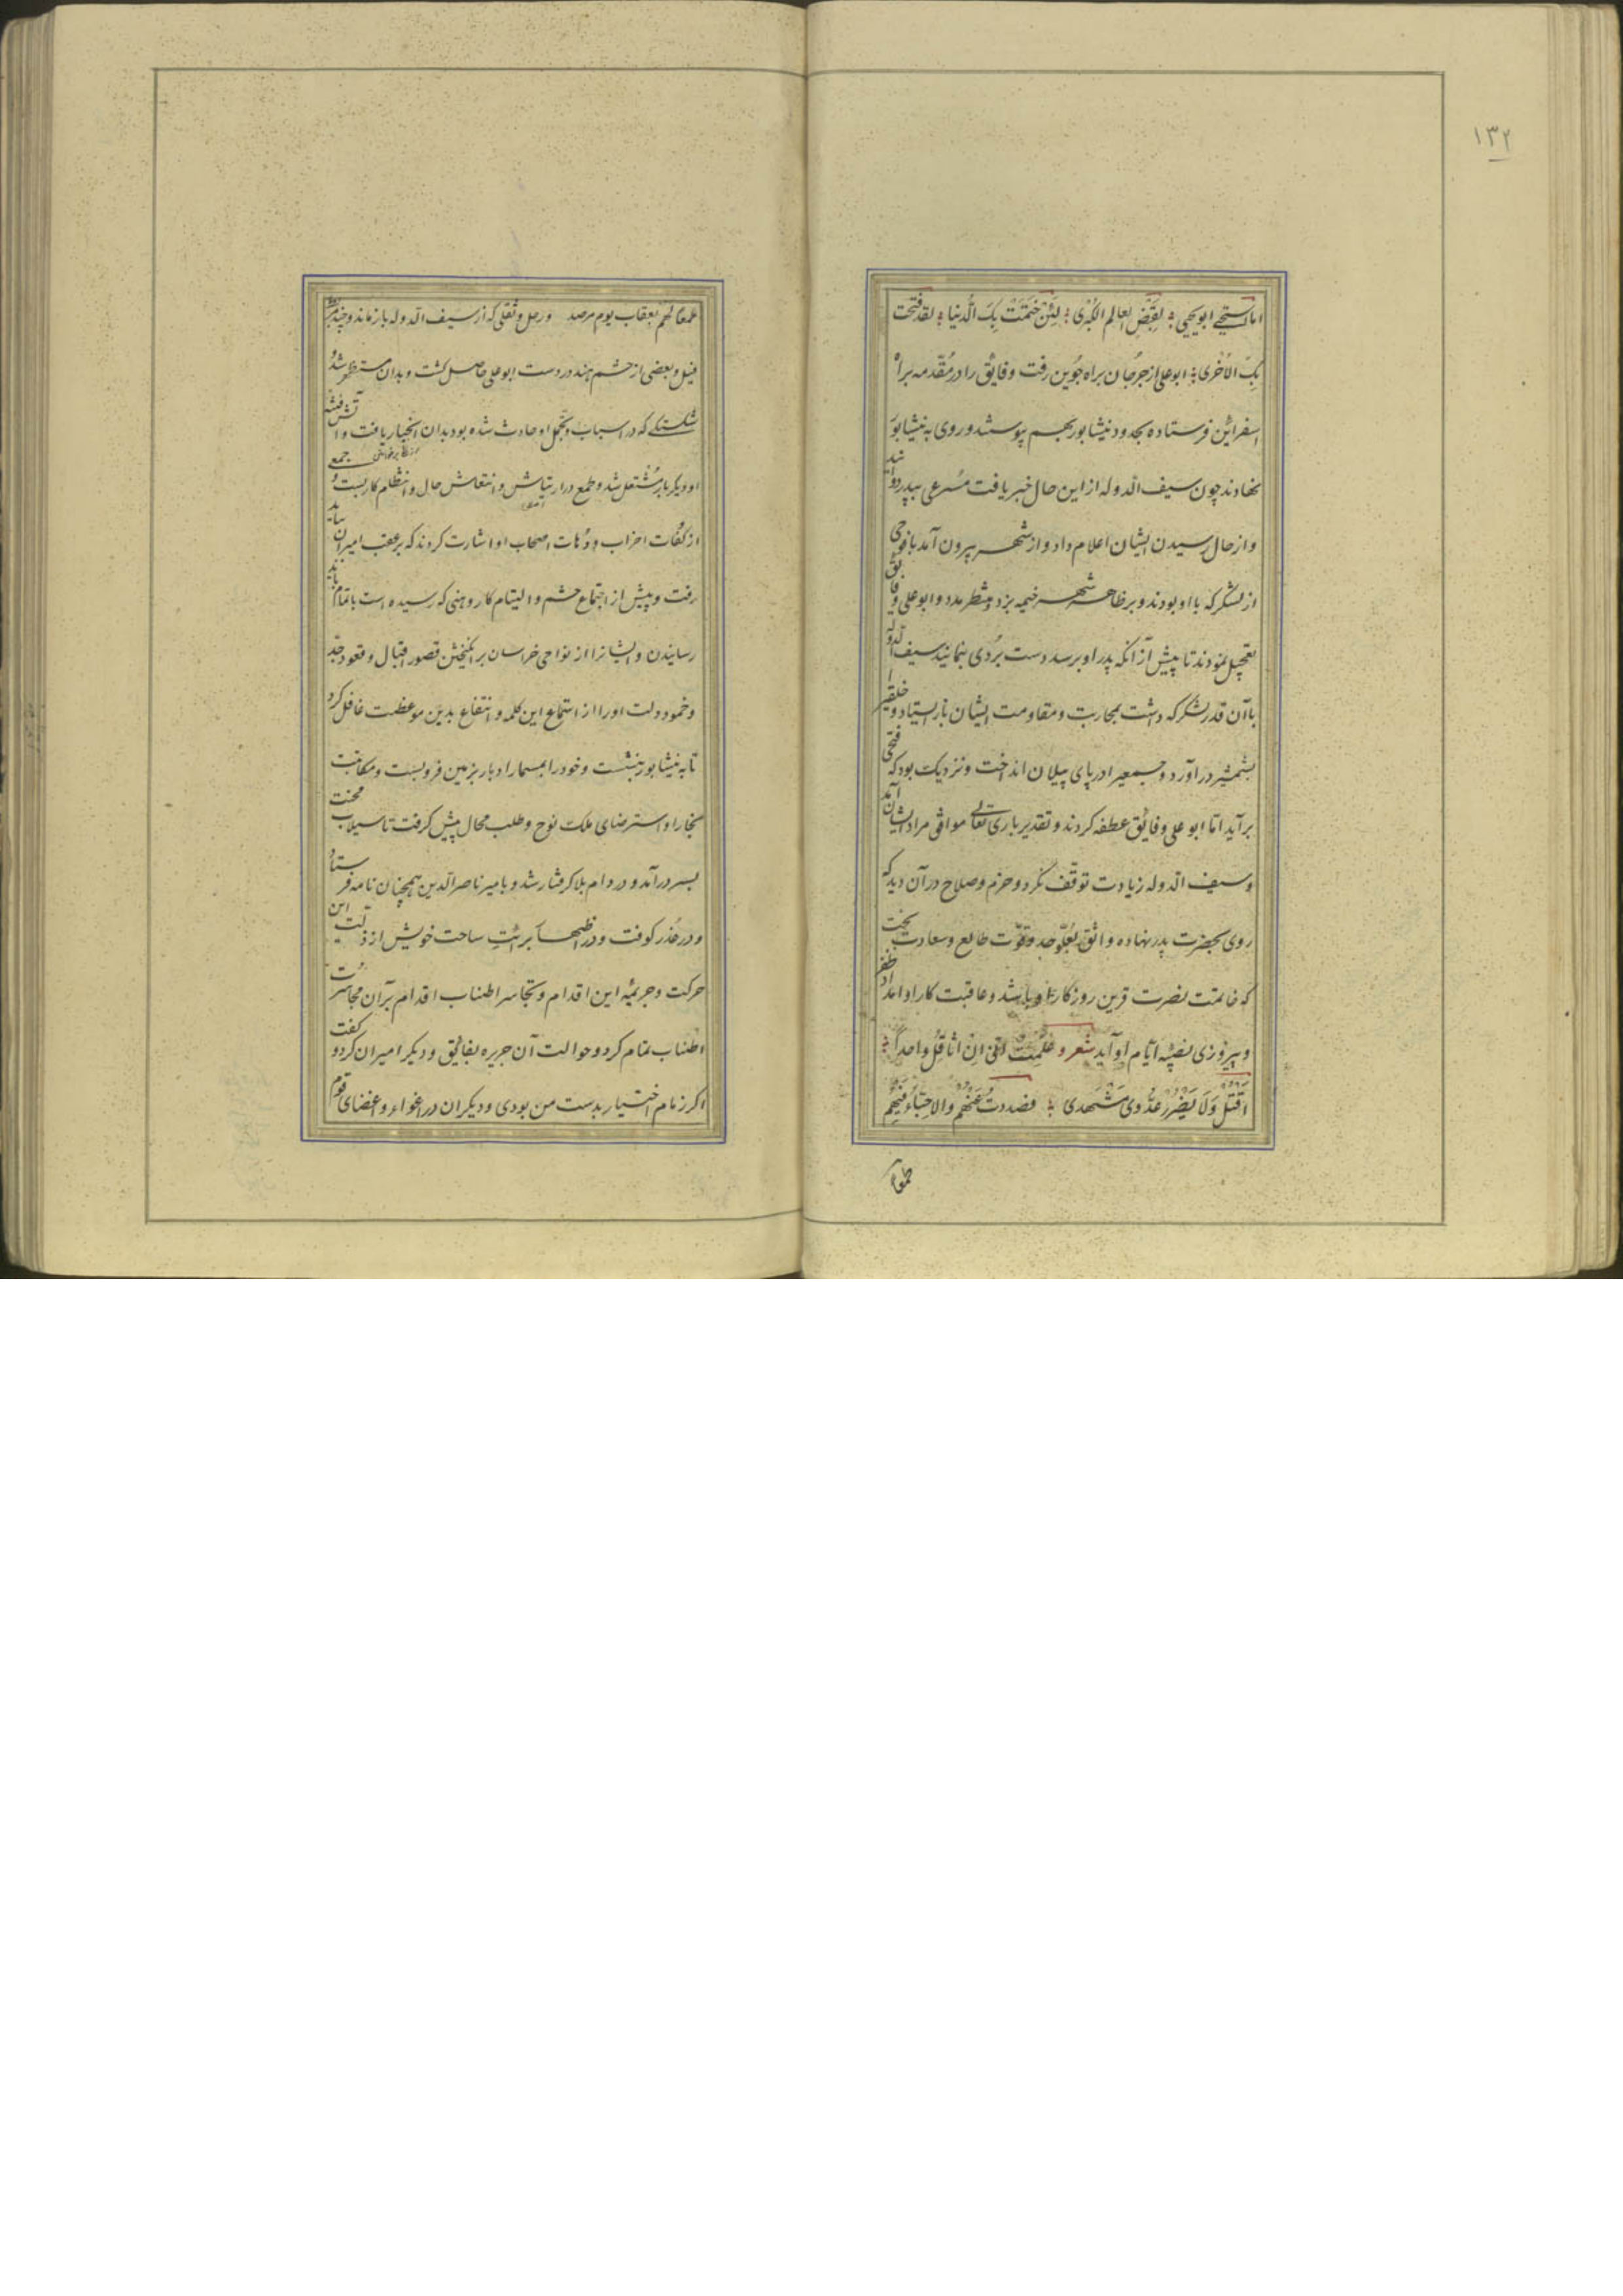 ۱۳۲
اما استحی ابو یحیی لقبض العالم الکبری لئن ختمت بک الدنیا لقد فتحت
بک الأخری ابو علی از جرجان براه جوین رفت و فایق را در مقدمه براه
اسفراین فرستاد و بحدود نیشابور بهم پیوستند و روی به نیشابور
نهادند چون سیف الدوله از این حال خبر یافت مسرعی بپدر دوانید
و از حال رسیدن ایشان اعلام داد و از شهر بیرون آمد با فوجی
از لشکر که با او بودند و بر ظاهر شهر خیمه بزد منتظر مدد و ابو علی و فایق
تعجیل نمودند تا پیش از آنکه پدر او برسد دست بردی نمایند سیف الدوله
با آن قدر لشکر که داشت بمحاربت و مقاومت ایشان باز ایستاد و خلقی را
بشمشیر در آورد و جمعی را در پای پیلان انداخت و نزدیک بود که فتحی
برآید اما ابو علی و فائق عطفه کردند و تقدیر باری تعالی موافق مراد ایشان آمد
و سیف الدوله زیادت توقف نکرد و حزم و صلاح در آن دید که
روی بحضرت پدر نهاده واثق بعلو جد و قوت طالع و سعادت بخت
که خاتمت نصرت قرین روزگار او باشد و عاقبت کار او امداد ظفر
و پیروزی نصیبه ایام او آید شعر و علمت انی ان اقاتل واحدا
اقتل ولا یضرر عدوی مشهدی فصددت عنهم والاحبة فیهم
طمعا
طمعا لهم بعقاب یوم مرصد و رحل و ثقلی که از سیف الدوله باز ماند و چند مربط
فیل و بعضی از حشم هند در دست ابو علی حاصل گشت و بدان مستظهر شد و
شکستگی که در اسباب و تجمل او حادث شده بود بدان انجبار یافت و آتش فتنه
او دیگر بار مشتعل شد و طمع در ارتیاش و انتعاش حال و انتظام کار بست و جمعی
از کفات احزاب و دهات اصحاب او اشارت کردند که بر عقب امیران بباید
رفت و پیش از اجتماع حشم و التیام کار وهنی که رسیده است باتمام باید
رسانیدن و ایشانرا از نواحی خراسان برانگیختن قصور اقبال و قعود جد
و خمود دولت او را از استماع این کلمه و انتفاع بدین موعظت غافل کرد
تا به نیشابور بنشست و خود را بمسمار ادبار بزمین فرو بست و مکاتبت
بخارا و استرضای ملک نوح و طلب محال پیش گرفت تا سیلاب محنت
بسر در آمد و در دام بلا گرفتار شد و بامیر ناصر الدین همچنان نامه فرستاد
و در عذر کوفت و در اظهار برائت ساحت خویش از ذلت این
حرکت و جریمه این اقدام و تجاسر اطناب اقدام بر آن مجاسرت
اطناب تمام کرد و حوالت آن جریره بفائق و دیگر امیران کرد و گفت
اگر زمام اختیار بدست من بودی و دیگران در اغواء و اغضای قوم